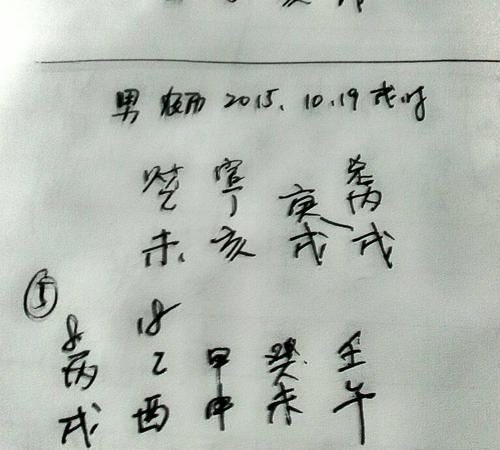 男 农历 2015.10.19 戌时
财 官 杀
乙 丁 庚 丙
未 亥 戌 戌
⑤
8 18
丙 乙 甲 癸 壬
戌 酉 申 未 午